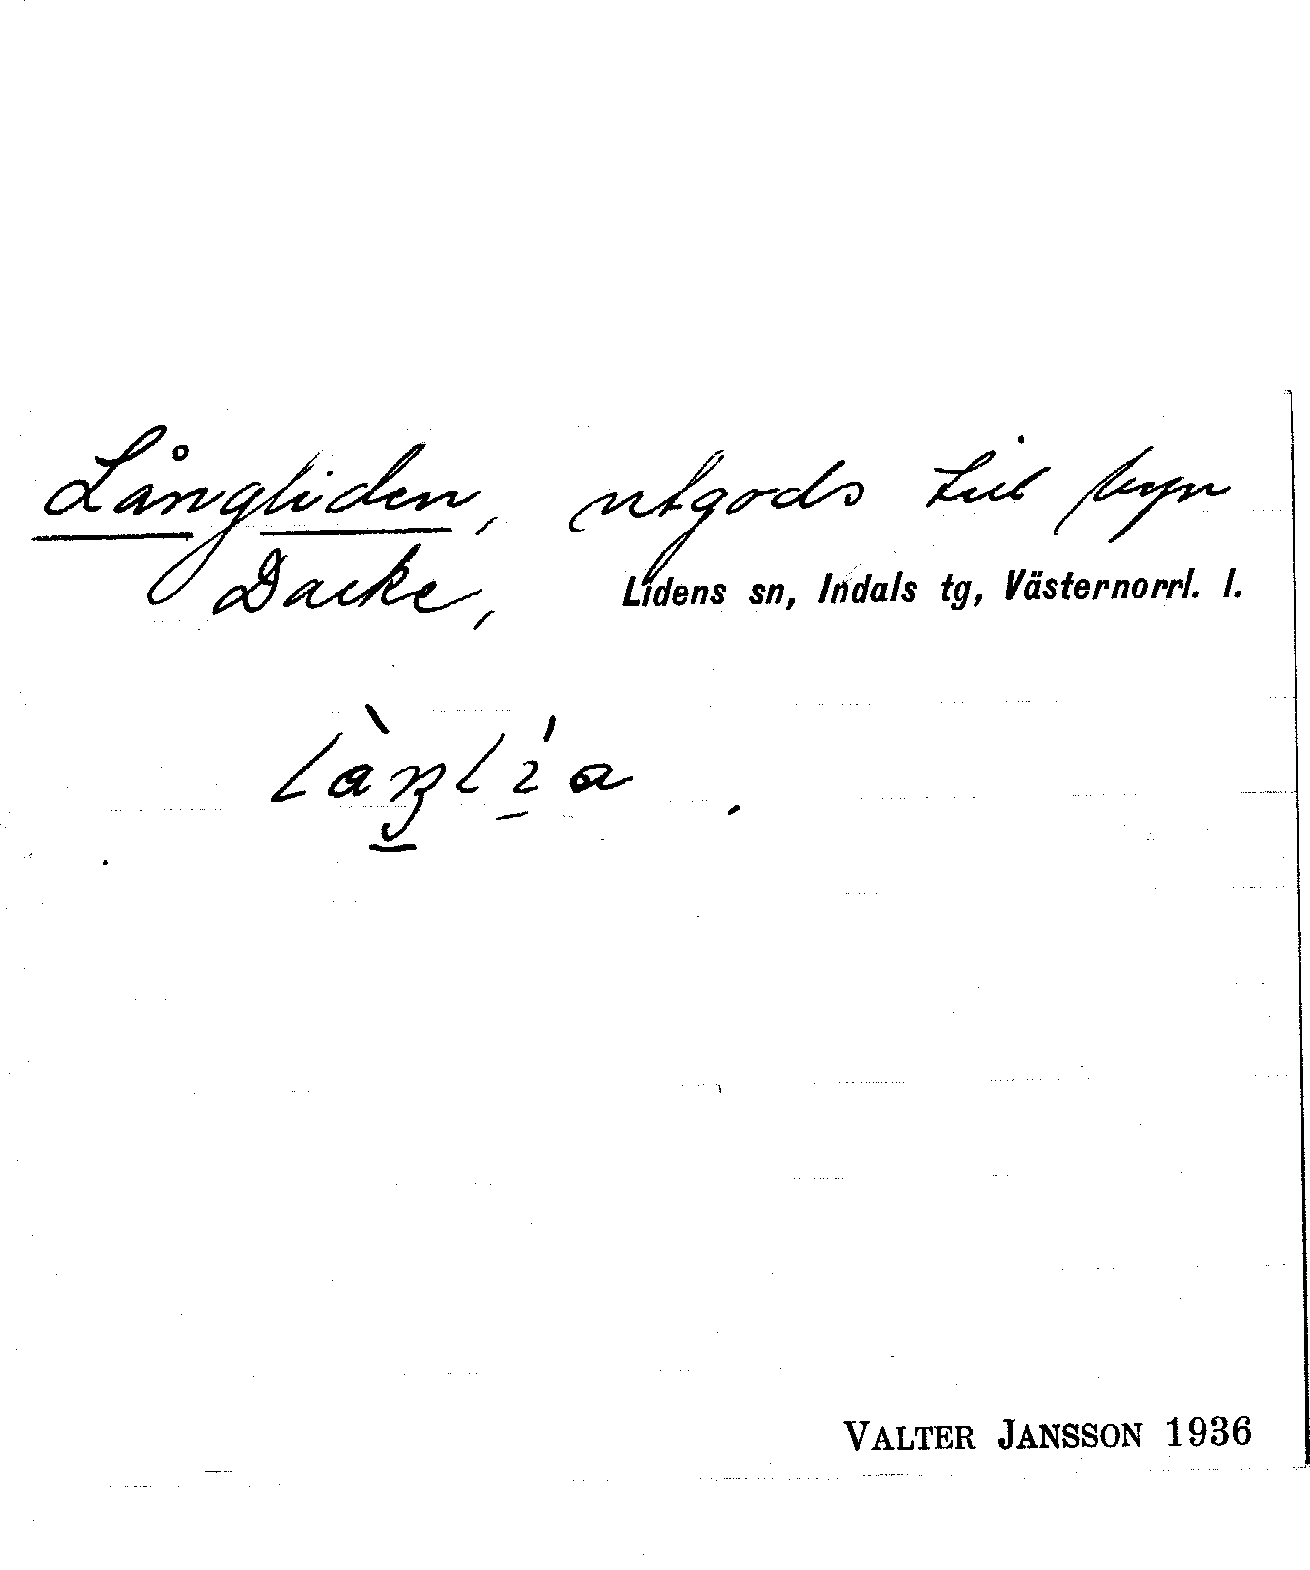 Långliden, utgods till byn
Dacke, Lidens sn, Indals tg, Västernorrl. l.
VALTER JANSSON 1936